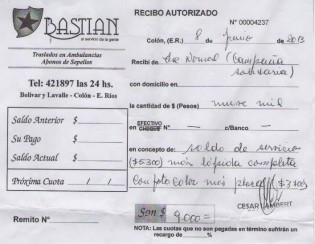 BASTIAN
al servicio de la gente
Traslados en Ambulancias
Abonos de Sepelios
Tel: 421897 las 24 hs.
Bolivar y Lavalle - Colón - E. Ríos
Saldo Anterior $
Su Pago $
Saldo Actual $
Próxima Cuota / /
Remito Nº
RECIBO AUTORIZADO
Nº 00004237
Colón, (E.R.) 8 de junio de 2013
Recibí de
con domicilio en
la cantidad de $ (Pesos) nueve mil
en EFECTIVO CHEQUE Nº — c/Banco —
en concepto de: saldo de servicio
($5300) más lápida completa
con foto color más placa ($3700)
CESAR LAMBERT
Son $ 9.000=
NOTA: Las cuotas que no son pagadas en término sufrirán un
recargo de %